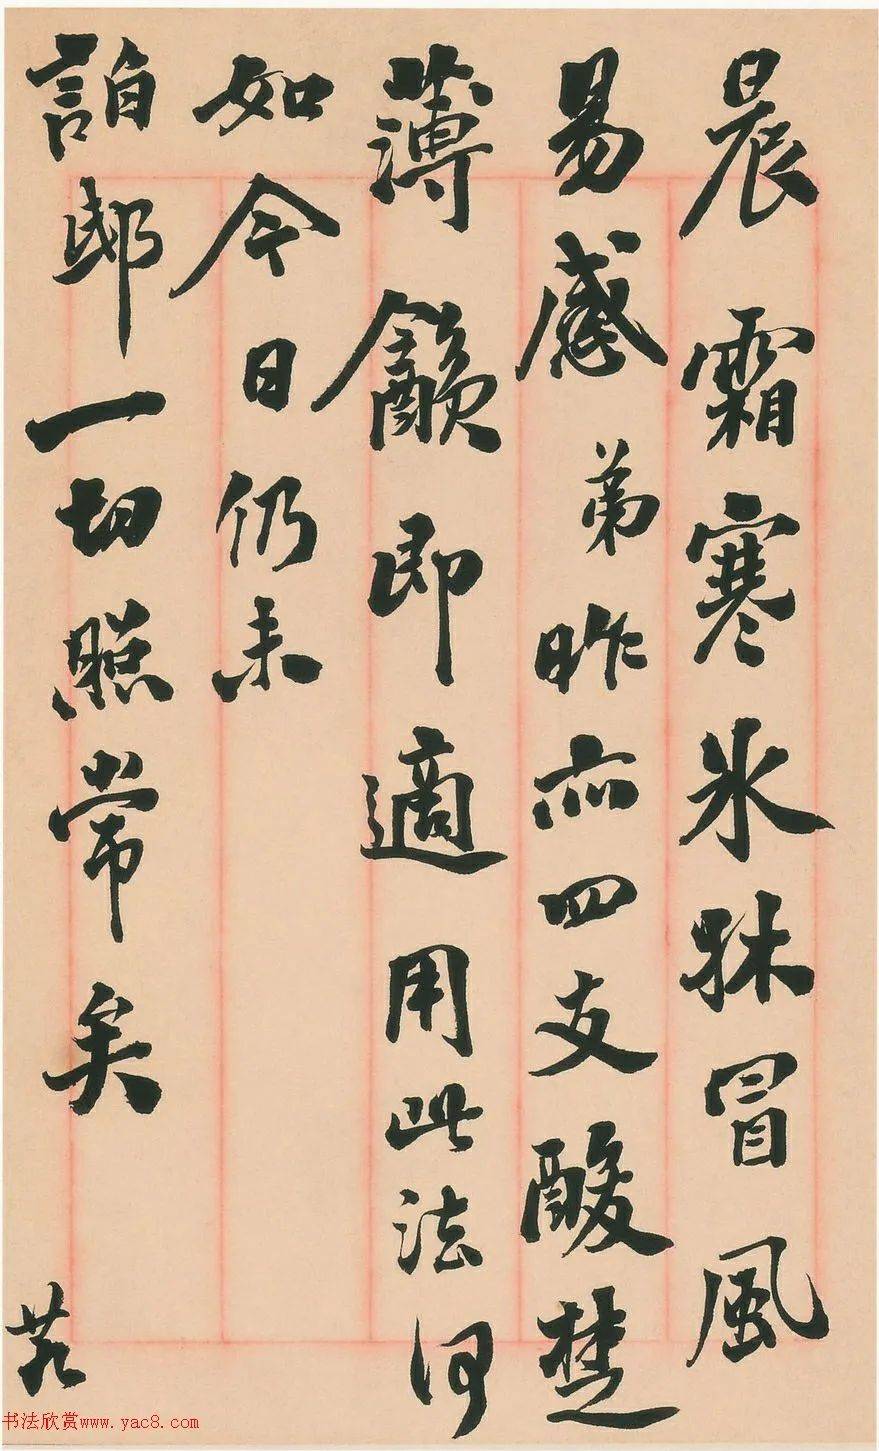 晨霜寒氷冒風
易感弟昨亦四支酸楚
薄㱃即適用此法何
如今日仍未
詣邸一切照常矣
书法欣赏www.yac8.com